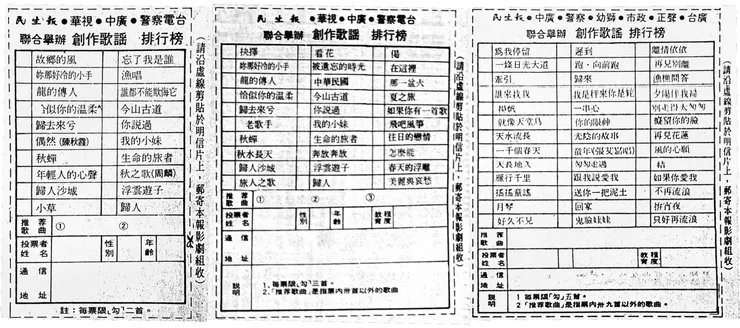 民生報●華視●中廣●警察電台
聯合舉辦 創作歌謠 排行榜
故鄉的風 忘了我是誰
妳那好冷的小手 漁唱
龍的傳人 誰都不能欺侮它
恰似你的溫柔 今山古道
歸去來兮 你說過
偶然(陳秋霞) 我的小妹
秋蟬 生命的旅者
年輕人的心聲 秋之歌(周麟)
歸人沙城 浮雲遊子
小草 歸人
推荐歌曲 ① ②
投票者姓名 性別 年齡
通信地址
註：每票限「勾」二首。
(請沿虛線剪貼於明信片上，郵寄本報影劇組收)
民生報●華視●中廣●警察電台
聯合舉辦 創作歌謠 排行榜
抉擇 看花 傷
妳那好冷的小手 被遺忘的時光 在這裡
龍的傳人 中華民國 那一盆火
恰似你的溫柔 今山古道 夏之旅
歸去來兮 你說過 如果你有一首歌
老歌手 我的小妹 飛吧風箏
秋蟬 生命的旅者 往日的戀情
秋水長天 奔放奔放 怎麼能
歸人沙城 浮雲遊子 春天的浮雕
旅人之歌 歸人 美麗與哀愁
推荐歌曲 ① ② ③
投票者姓名 性別 年齡 教育程度
通信地址
說明 1.每票限「勾」三首。
2.「推荐歌曲」是指票內卅九首以外的歌曲
(請沿虛線剪貼於明信片上，郵寄本報影劇組收)
民生報●中廣●警察●幼獅●市政●正聲●台廣
聯合舉辦 創作歌謠 排行榜
為我停留 遲到 離情依依
一條日光大道 跑，向前跑 再見別離
牽引 歸來 漁樵問答
誰來找我 我是秤來你是砣 夕陽伴我歸
一串心
就像天堂鳥 你的眼神 癡望你的臉
天水流長 光陰的故事 再見花蓮
一千個春天 童年(張艾嘉唱) 風的心願
天長地久 勾勾走過 結
雁行千里 跟我說愛我 如果你愛我
搖搖童謠 送你一把泥土 不再流浪
月琴 回家 拆宵夜
好久不見 鬼臉妹妹 只好再流浪
推荐歌曲
投票者姓名 教育程度
通信地址
說明 1.每票限「勾」五首。
2.「推荐歌曲」是指票內卅九首以外的歌曲。
(請沿虛線剪貼於明信片上，郵寄本報影劇組收)